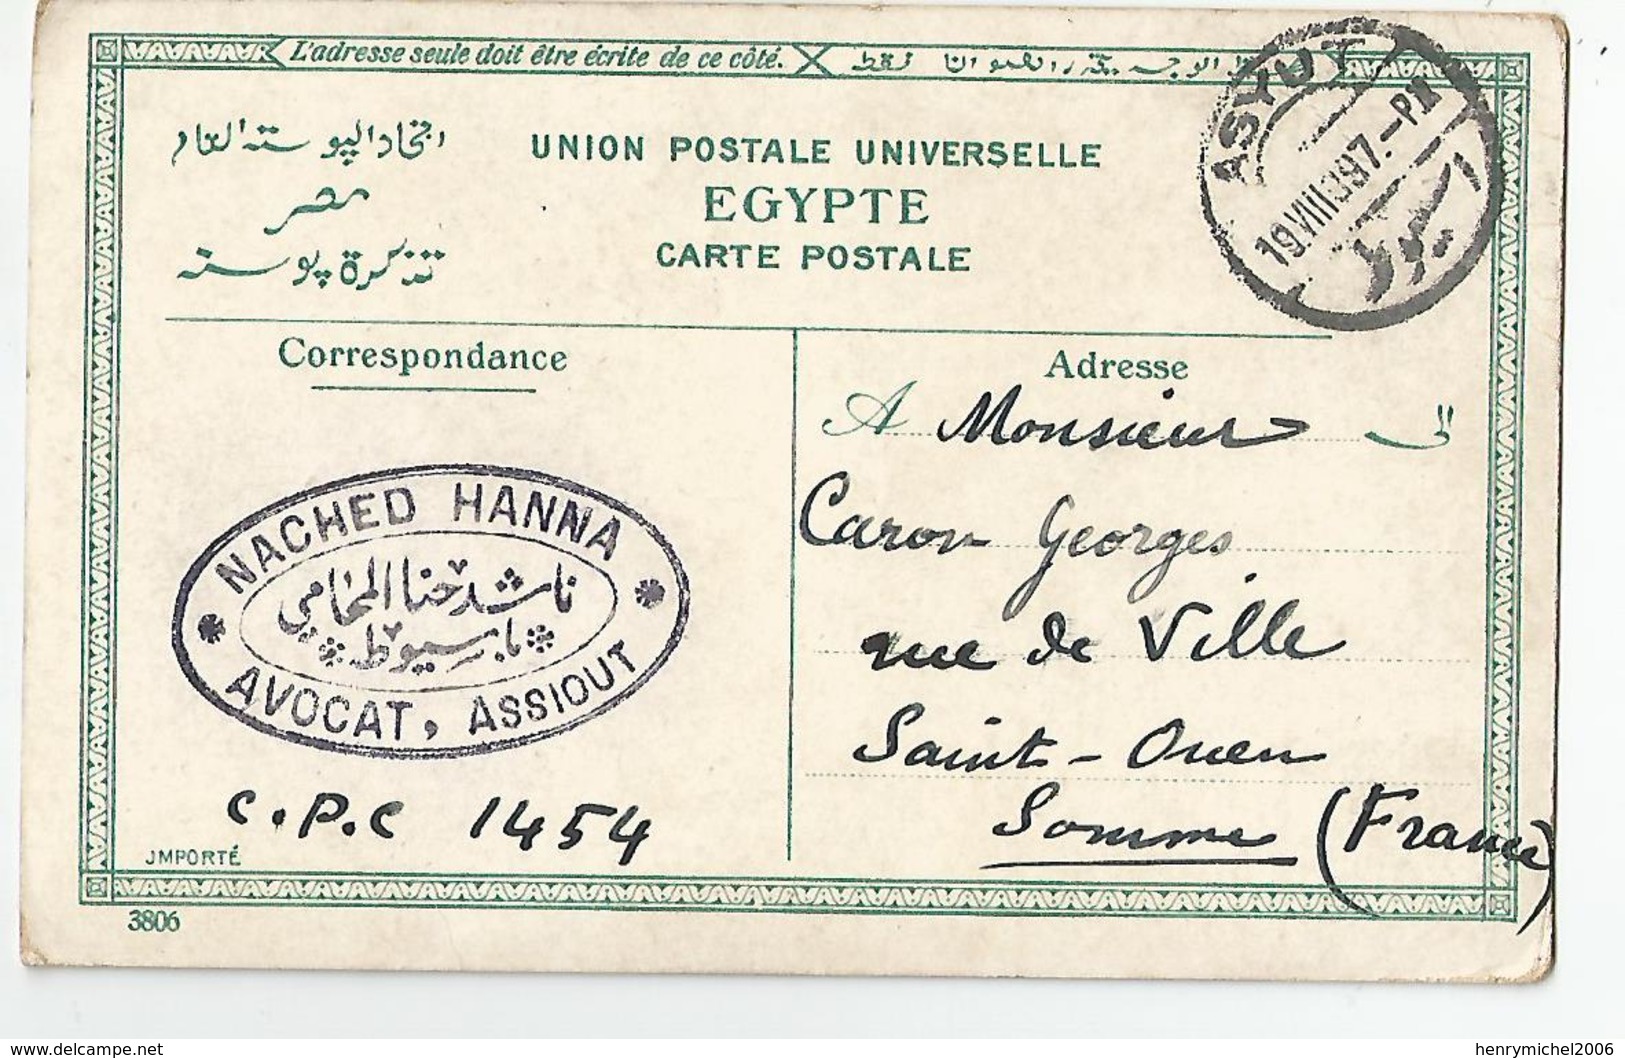 L'adresse seule doit être écrite de ce côté.
فقط
اتحاد البوسته العام
مصر
تذكرة بوسته
UNION POSTALE UNIVERSELLE
EGYPTE
CARTE POSTALE
ASYUT
19.VIII 39.7.-PM
اسيوط
Correspondance
NACHED HANNA
ناشد حنا المحامي
باسيوط
AVOCAT, ASSIOUT
C.P.C 1454
JMPORTÉ
3806
Adresse
A Monsieur الى
Caron Georges
rue de Ville
Saint-Ouen
Somme (France)
www.delcampe.net
henrymichel2006